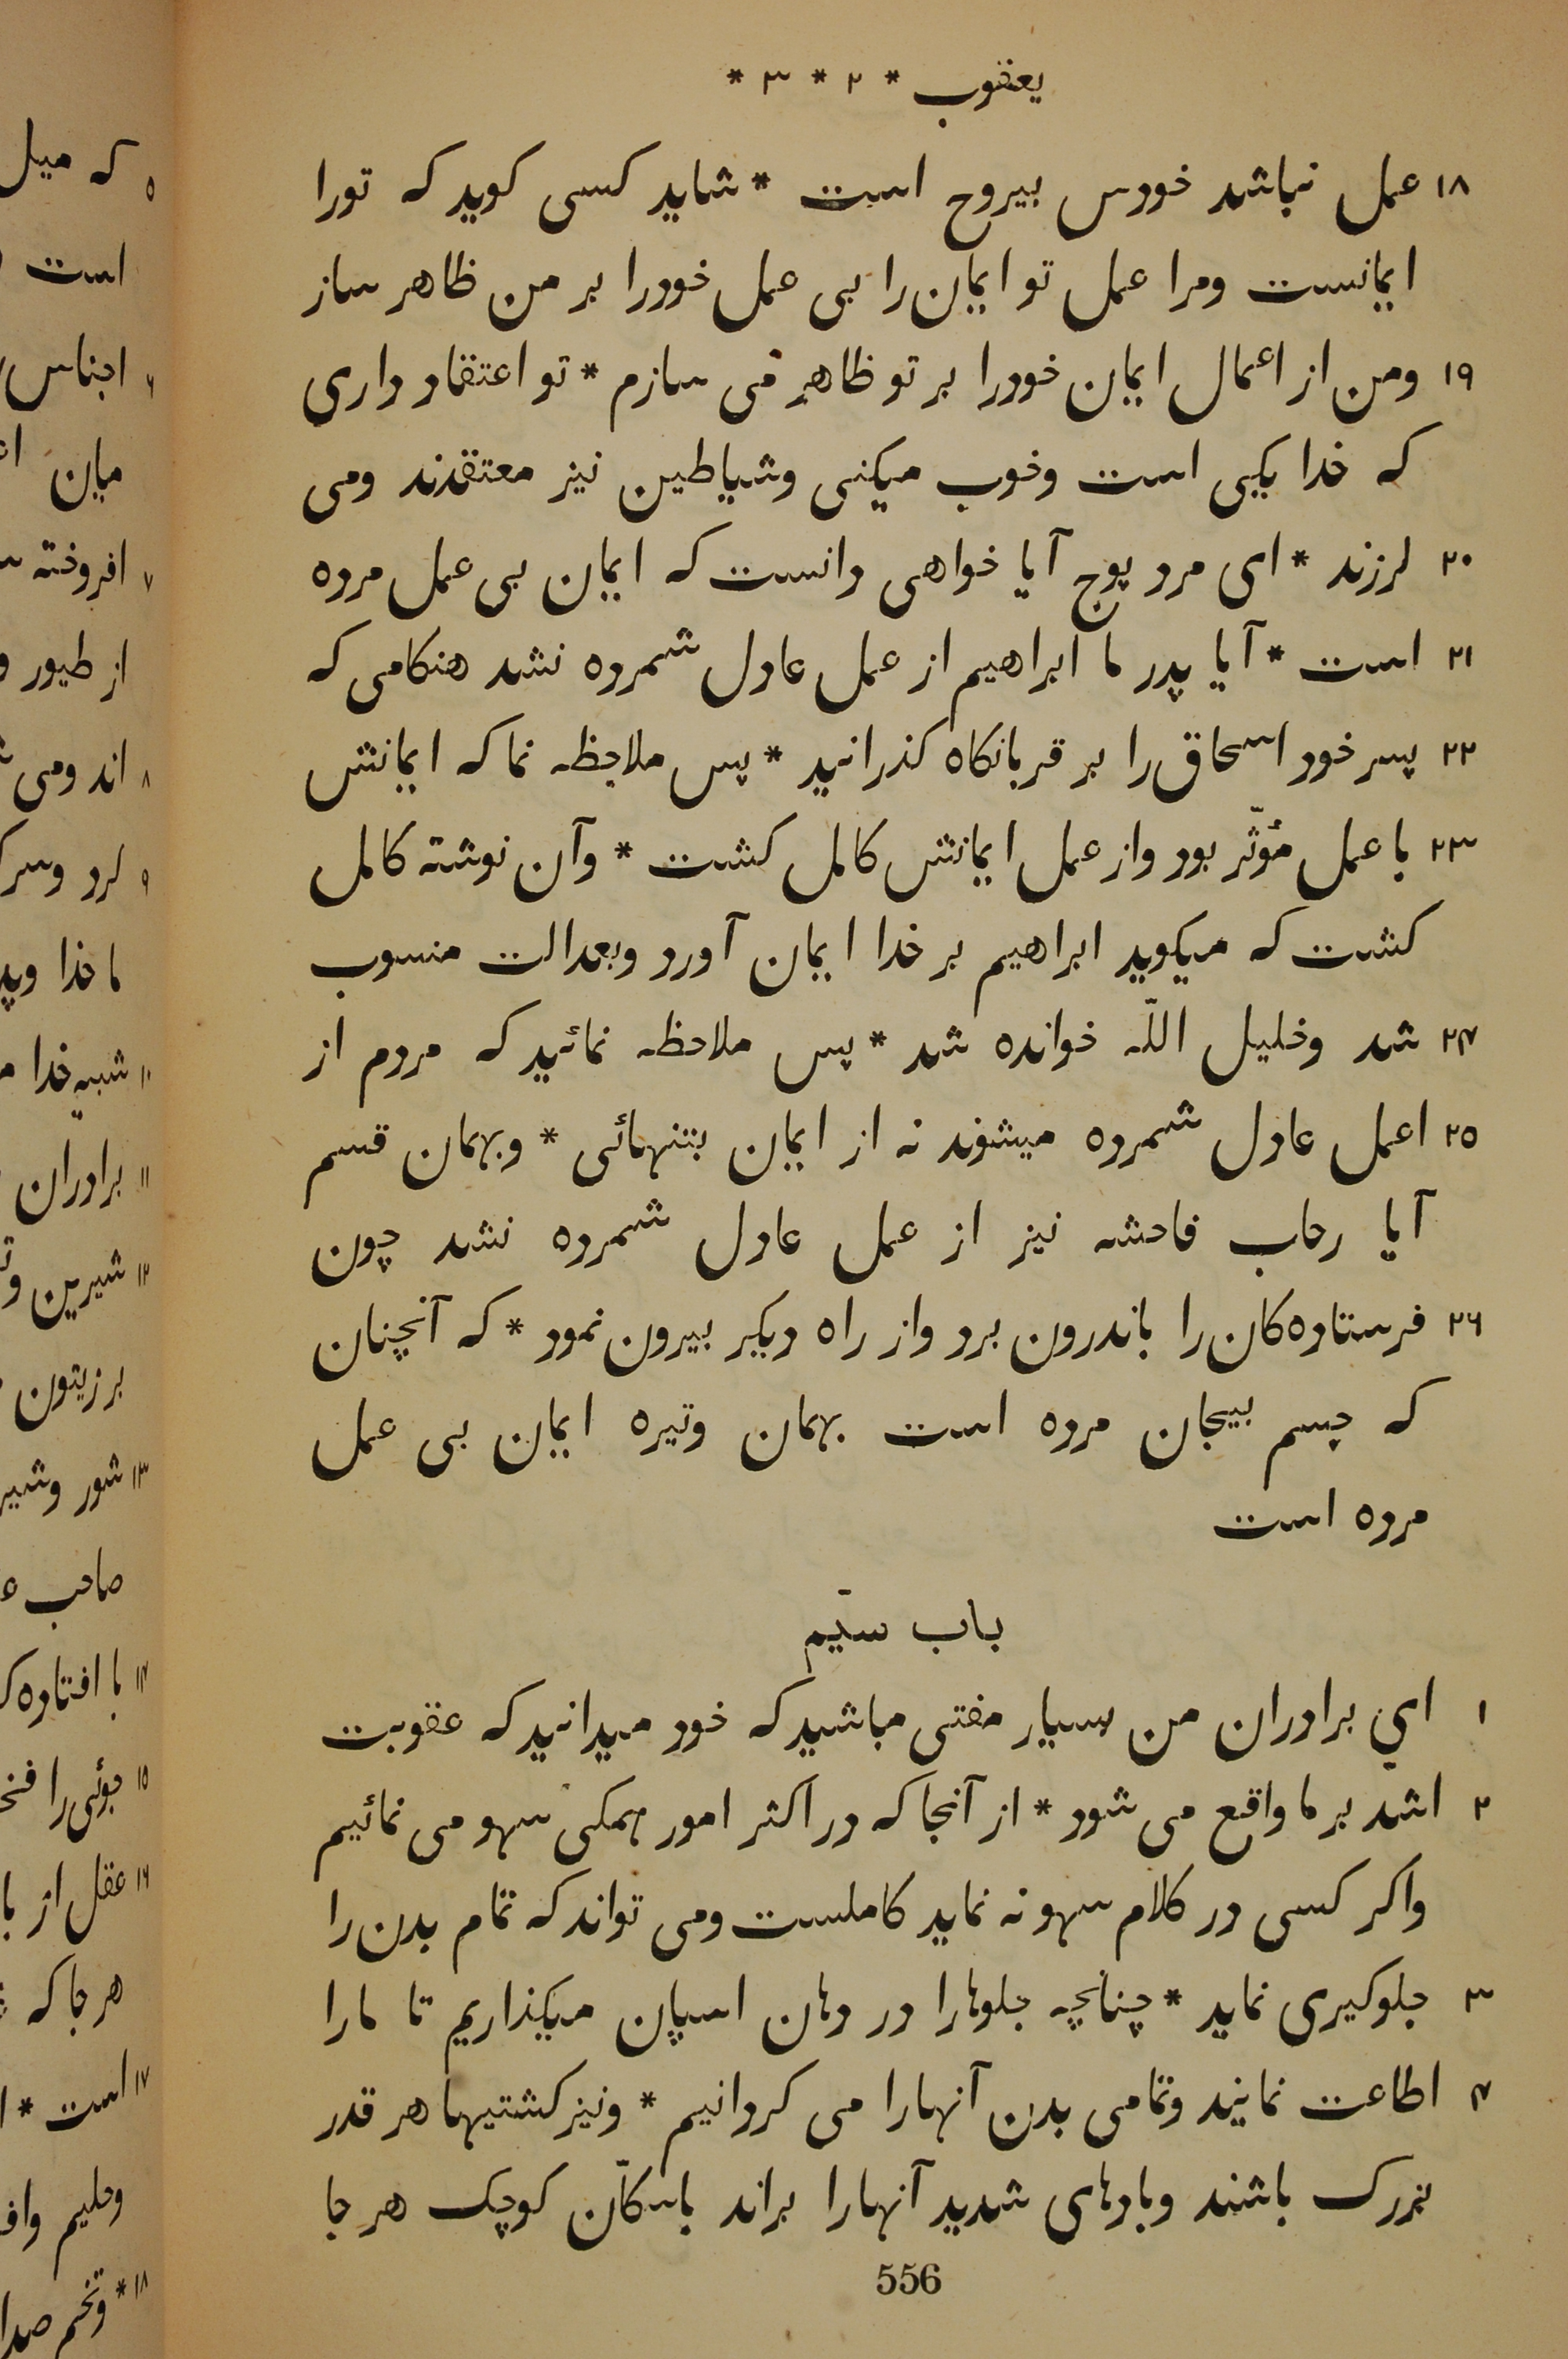 یعقوب * ۲ * ۳ *
۱۸ عمل نباشد خودس بیروح است * شاید کسی کوید که تورا
ایمانست ومرا عمل تو ایمان را بی عمل خودرا بر من ظاهر ساز
۱۹ ومن از اعمال ایمان خودرا بر تو ظاهر می سازم * تو اعتقاد داری
که خدا یکیی است وخوب میکنی وشیاطین نیز معتقدند ومی
۲۰ لرزند * ای مرد پوچ آیا خواهی دانست که ایمان بی عمل مرده
۲۱ است * آیا پدر ما ابراهیم از عمل عادل شمرده نشد هنکامی که
۲۲ پسر خود اسحاق را بر قربانکاه کذرانید * پس ملاحظه نما که ایمانش
۲۳ با عمل مؤثّر بود واز عمل ایمانش کامل کشت * وآن نوشته کامل
کشت که میکوید ابراهیم بر خدا ایمان آورد وبعدالت منسوب
۲۴ شد وخلیل اللّه خوانده شد * پس ملاحظه نمائید که مردم از
۲۵ اعمل عادل شمرده میشوند نه از ایمان بتنهائی * وبهمان قسم
آیا رحاب فاحشه نیز از عمل عادل شمرده نشد چون
۲۶ فرستاده کان را باندرون برد واز راه دیکر بیرون نمود * که آنچنان
که چسم بیجان مرده است بهمان وتیره ایمان بی عمل
مرده است
باب سیّم
۱ اي برادران من بسیار مفتی مباشید که خود میدانید که عقوبت
۲ اشد بر ما واقع می شود * از آنجا که در اکثر امور همکی سهو می نمائیم
واکر کسی در کلام سهو نه نماید کاملست ومی تواند که تمام بدن را
۳ جلوکیری نماید * چنانچه جلوهارا در دهان اسپان میکذاریم تا مارا
۴ اطاعت نمایند وتمامی بدن آنهارا می کردانیم * ونیز کشتیها هر قدر
بزرک باشند وبادهای شدید آنهارا براند باسکّان کوچک هر جا
556
۵ که میل
است
۶ اجناس
میان
۷ افروخته
از طیور و
۸ اند ومی
۹ کرد وسر
ما خدا وپد
۱۰ شبیه خدا
۱۱ برادران
۱۲ شیرین و
بر زیتون
۱۳ شور وشیر
صاحب
۱۴ با افتاده
۱۵ جوئی را
۱۶ عقل از با
هر جا که
۱۷ است *
وحلیم واف
۱۸ * وتخم صدا